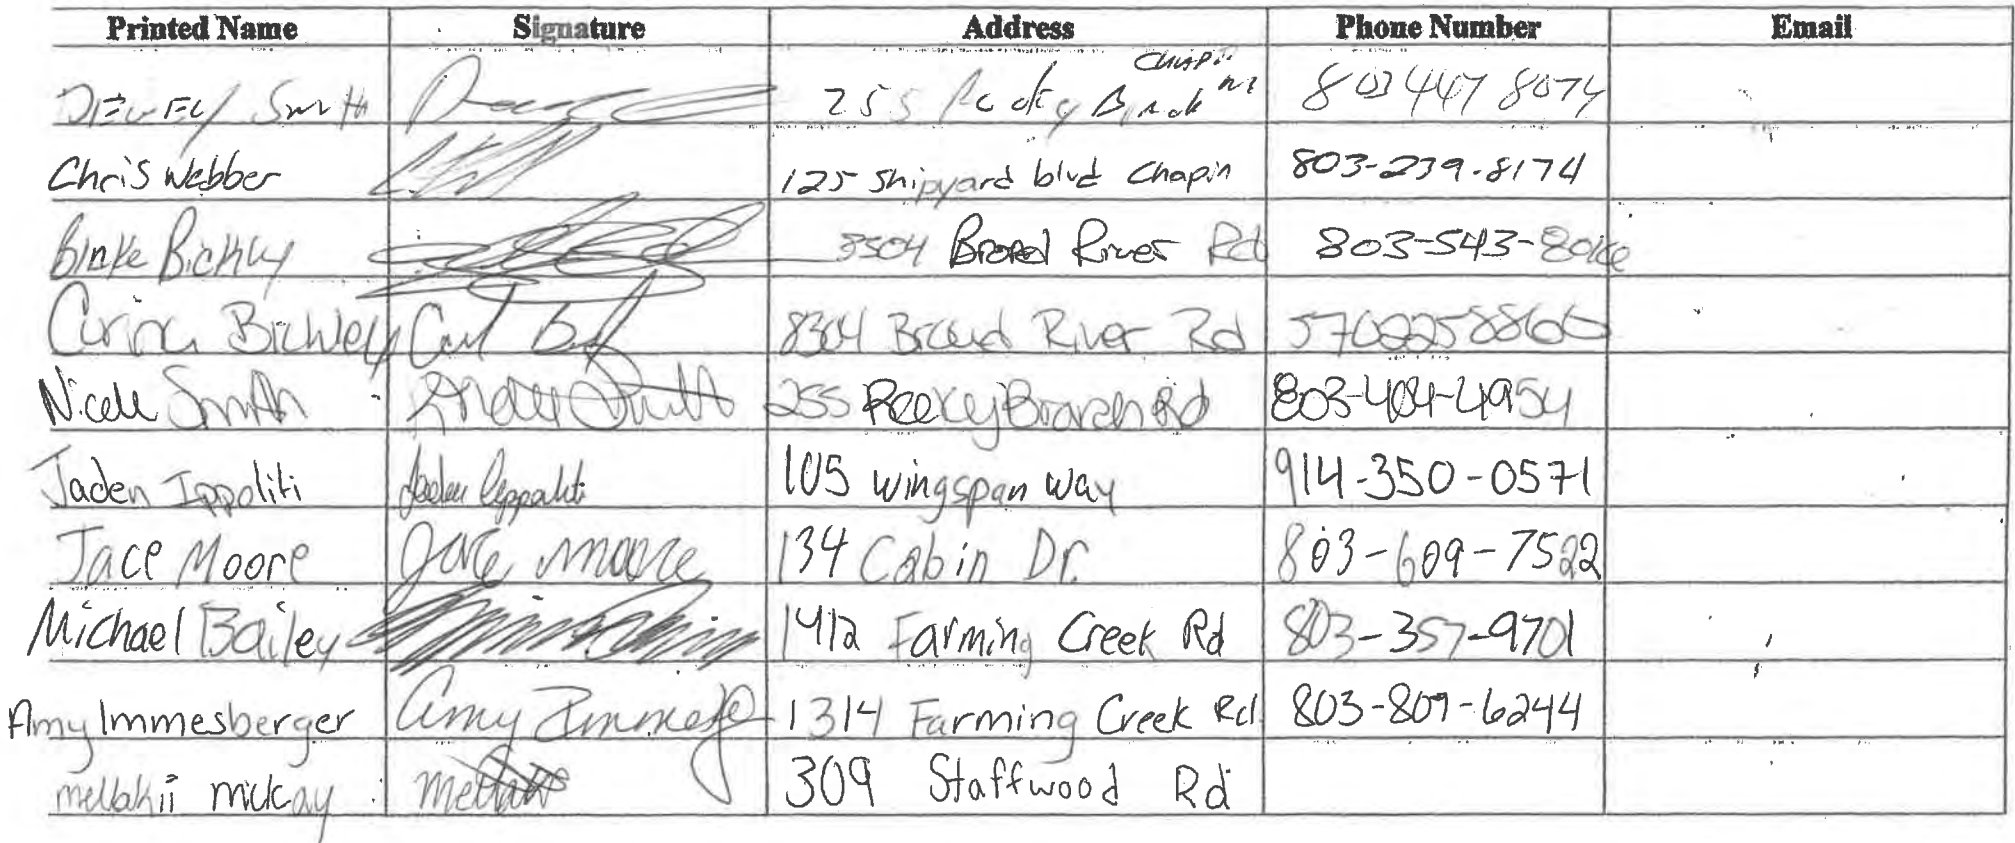 Printed Name Signature Address Phone Number Email
Smith 255 Rocky Branch Chapin 803 447 8074
Chris Webber 125 Shipyard blvd Chapin 803-239-8174
Blake Bickley Broad River Rd 803-543-
Bickley 8304 Broad River Rd
Nicole Smith 255 Rocky Branch Rd 803-404-4954
Jaden Ippoliti Jaden Ippoliti 105 Wingspan Way 914-350-0571
Jace Moore Jace Moore 134 Cabin Dr. 803-609-7522
Michael Bailey 1412 Farming Creek Rd 803-357-9701
Amy Immesberger Amy 1314 Farming Creek Rd. 803-809-6244
mellakii mickay 309 Staffwood Rd